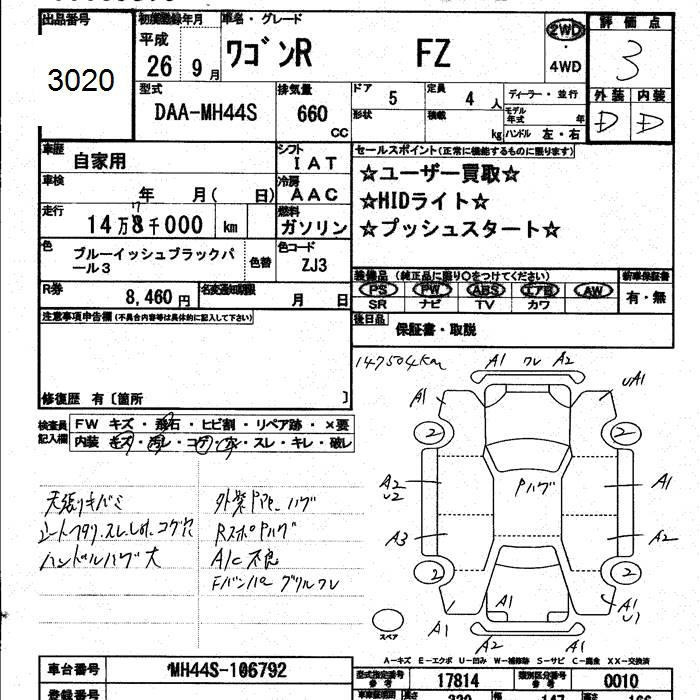 出品番号
3020
初度登録年月
平成
26 9月
車名・グレード
ワゴンR FZ
2WD
・
4WD
評価点
3
外装 内装
D D
型式
DAA-MH44S
排気量
660
CC
ドア 5
定員 4 人
ディーラー・並行
形状
積載 kg
モデル年式 年
ハンドル 左・右
車歴
自家用
シフト
IAT
車検
年 月( 日)
冷房
AAC
走行
14万8千000 km
7
燃料
ガソリン
色
ブルーイッシュブラックパール3
色替
色コード
ZJ3
R券
8,460円
名変通知期限
月 日
セールスポイント(正常に機能するものに限ります)
☆ユーザー買取☆
☆HIDライト☆
☆プッシュスタート☆
装備品 (純正品に限り○をつけてください)
PS PW ABS エアB AW
SR ナビ TV カワ
新車保証書
有・無
後日品
保証書・取説
注意事項申告欄(不具合内容等は具体的に記入して下さい)
修復歴 有〔箇所 〕
検査員記入欄
FW キズ・飛石・ヒビ割・リペア跡・×要
内装 キズ・汚レ・コゲ・穴・スレ・キレ・破レ
147504km
A1 ワレ A2
A1
UA1
2
2
A2
U2
A1
Pハゲ
A3
A2
2
2
A1
A1
U1
A1
A2
A1
スペア
天張りキバミ
シートヘタリ.スレ.しみ.コゲ穴
ハンドルハゲ大
外装Pマセ.ハゲ
RスポPハゲ
A/C不良
Fバンパー グリルワレ
A-キズ E-エクボ U-凹み W-補修跡 S-サビ C-腐食 XX-交換済
車台番号
MH44S-106792
型式指定番号
参考
17814
類別区分番号
参考
0010
登録番号